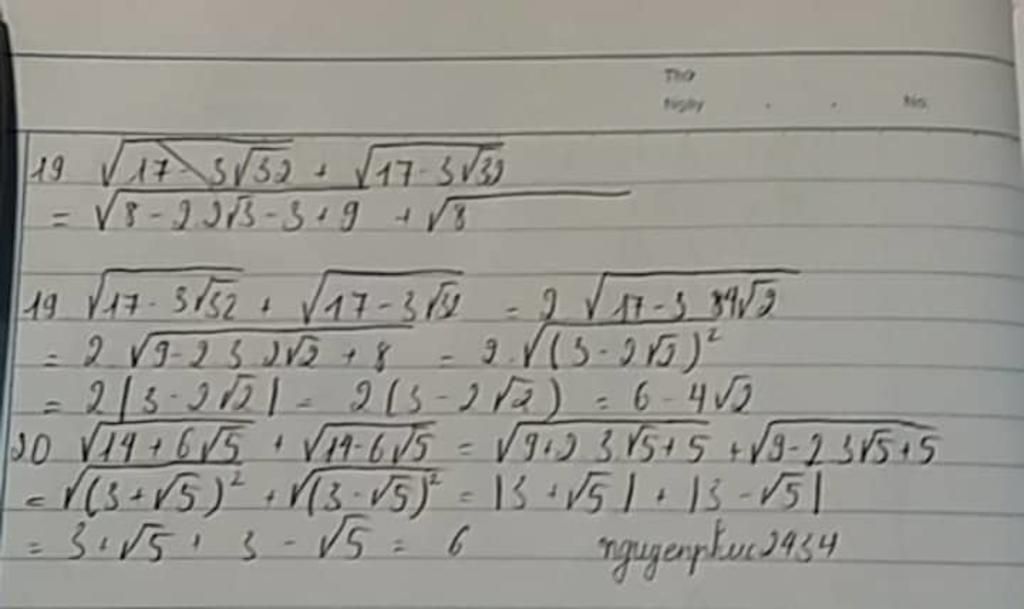 Thứ
Ngày . . No.
19 √17 - 3√32 + √17 - 3√32
= √8 - 2 2√3 - 3 + 9 + √8
19 √17 - 3√32 + √17 - 3√32 = 2 √17 - 3 √2
= 2 √9 - 2 3 2√2 + 8 = 2 . √(3 - 2√2)²
= 2|3 - 2√2| = 2(3 - 2√2) = 6 - 4√2
20 √14 + 6√5 + √14 - 6√5 = √9 + 2 3√5 + 5 + √9 - 2 3√5 + 5
= √(3 + √5)² + √(3 - √5)² = |3 + √5| + |3 - √5|
= 3 + √5 + 3 - √5 = 6 nguyenphuc2434